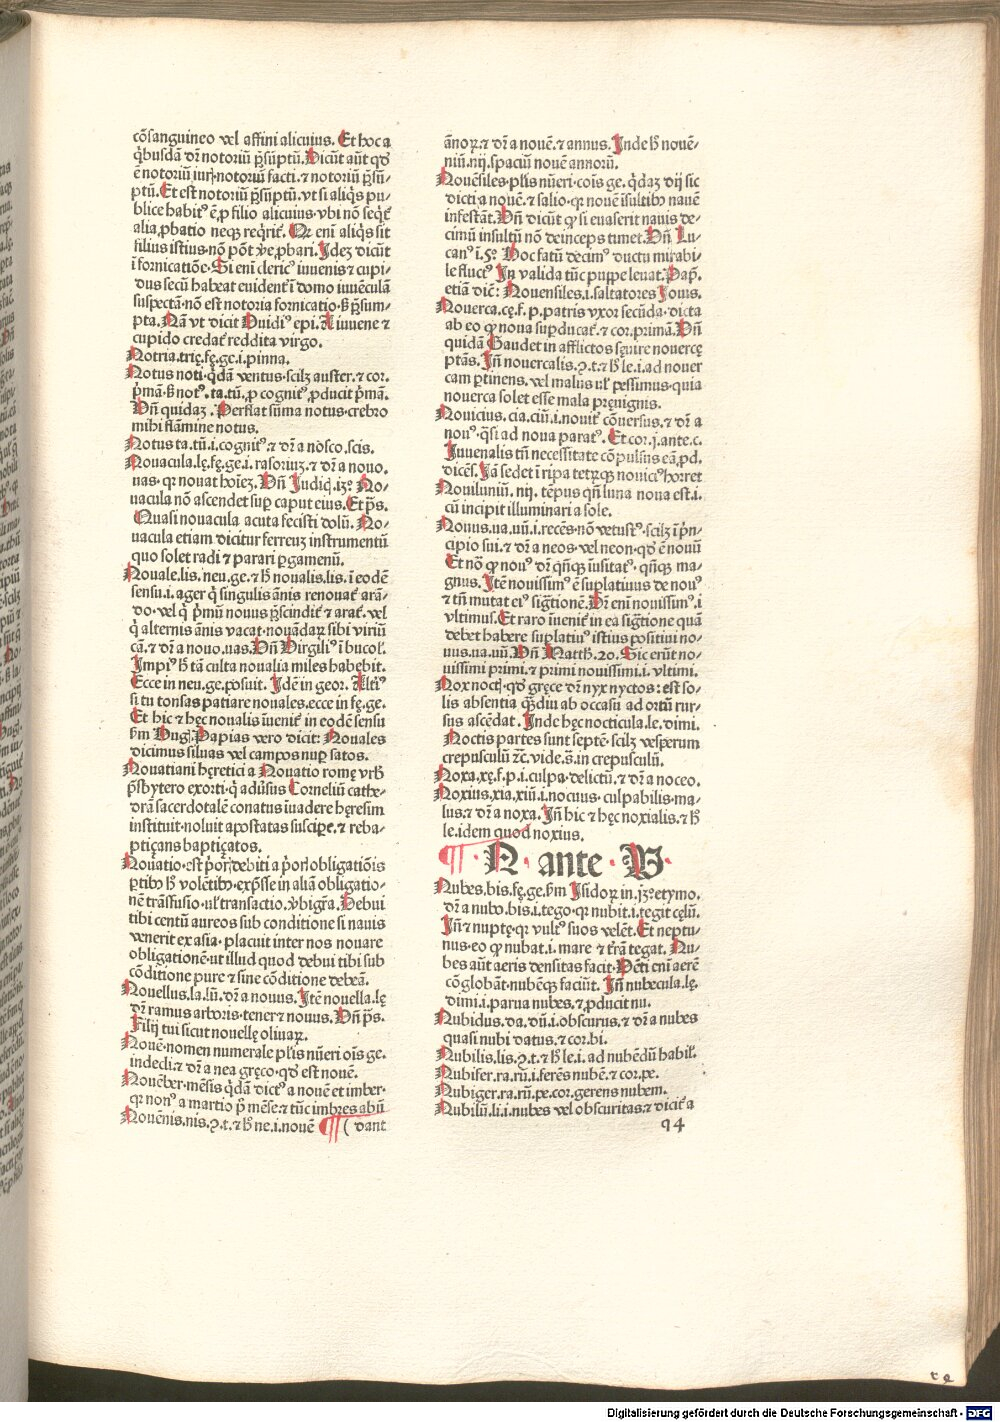 cōsanguineo vel affini alicuius. Et hoc a
q̇busdā dr̄ notoriū p̄sūptū. Dicūt aūt qd'
ē notoriū iurꝭ. notoriū facti. ⁊ notoriū p̄sū-
ptū. Et est notoriū p̄sūptū. vt si aliq̇s pu-
blice habitꝰ ē ꝓ filio alicuius. vbi nō seq̄t̄
alia ꝓbatio neqꝫ req̇rit̄. Qꝛ eni aliq̇s sit
filius istius. nō pōt v̄e ꝓbari. Idez dicūt
ī fornicatiōe. Si eni clericꝰ iuuenis ⁊ cupi-
dus secū habeat euident̄ ī domo iuuēculā
suspectā. nō est notoria fornicatio. s̄ p̄sum-
pta. Nā vt dicit Ouidiꝰ epi. A iuuene ⁊
cupido credat̄ reddita virgo.
Notria. trię. fę. ge. i. pinna.
Notus noti. q̇dā ventus. scilꝫ auster. ⁊ cor.
p̄mā. s̄ notꝰ. ta. tū. ꝓ cognitꝰ ꝓducit p̄mā.
Vn̄ quidaz. Perflat sūma notus. crebro
mihi flāmine notus.
Notus ta. tū. i. cognitꝰ ⁊ dr̄ a nosco. scis.
Nouacula. lę. fę. ge. i. rasoriuz. ⁊ dr̄ a nouo.
nas. qꝛ nouat hoīez. Vn̄ Judiq̄. iꝫꝰ No-
uacula nō ascendet suꝑ caput eius. Et ps̄.
Quasi nouacula acuta fecisti dolū. No-
uacula etiam dicitur ferreuz instrumentū
quo solet radi ⁊ parari ꝑgamenū.
Nouale. lis. neu. ge. ⁊ h̄ noualis. lis. ī eodē
sensu. i. ager q̇ singulis ānis renouat̄ arā-
do. vel q̇ p̄mū nouus ꝓscindit̄ ⁊ arat̄. vel
q̇ alternis ānis vacat. nouādaꝝ sibi viriū
cā. ⁊ dr̄ a nouo. uas. Vn̄ Virgiliꝰ ī bucol.
Impiꝰ h̄ tā culta noualia miles habebit.
Ecce in neu. ge. posuit. Idē in geor. Altīꝰ
si tu tonsas patiare nouales. ecce in fę. ge.
Et hic ⁊ hęc noualis īuenit̄ in eodē sensu
ẜm Hug. Papias vero dicit: Nouales
dicimus siluas vel campos nuꝑ satos.
Nouatiani hęretici a Nouatio romę vrb̄
p̄sbytero exorti. q̇ adusus Corneliū cathe-
drā sacerdotalē conatus īuadere hęresim
instituit. noluit apostatas suscipe. ⁊ reba-
ptiçans baptiçatos.
Nouatio. est poꝝ debiti a poꝛi obligatiōis
ꝑtib̄ h̄ volētib̄. exp̄sse in aliā obligatio-
nē trāsfusio. ul̓ transactio. v̄bigr̄a. Debui
tibi centū aureos sub conditione si nauis
venerit ex asia. placuit inter nos nouare
obligationē. ut illud quod debui tibi sub
cōditione pure ⁊ sine cōditione debeā.
Nouellus. la. lū. dr̄ a nouus. Itē nouella. lę
dr̄ ramus arboris. tener ⁊ nouus. Vn̄ ps̄.
Filij tui sicut nouellę oliuaꝝ.
Nouē. nomen numerale plis nūeri ois ge.
indecli. ⁊ dr̄ a nea gręco. qd' est nouē.
Nouēber. mēsis q̇dā dictꝰ a nouē et imber.
qꝛ nonꝰ a martio p̄ mēse. ⁊ tūc imbres abū
Nouēnis. nis. ꝯ. t. ⁊ h̄ ne. i. nouē ¶ ( dant
ānoꝝ. ⁊ dr̄ a nouē. ⁊ annus. Inde h̄ nouē-
niū. nij. spaciū nouē annorū.
Nouēsiles. plis nūeri. cois ge. q̇daz dij sic
dicti a nouē. ⁊ salio. qꝛ nouē īsultib̄ nauē
infestāt. Vn̄ dicūt ꝙ si euaserit nauis de-
cimū insultū nō deinceps timet. Vn̄ Lu-
canꝰ i. 5ꝰ Hoc fatū decimꝰ ductu mirabi-
le fluctꝰ In valida tūc puppe leuat. Pap̄.
etiā dic̄: Nouensiles. i. saltatores Jouis.
Nouerca. cę. f. p. patris vxor secūda. dicta
ab eo ꝙ noua suꝑducat̄. ⁊ cor. primā. Vn̄
quidā Gaudet in afflictos sęuire nouercę
ptās. In̄ nouercalis. ꝯ. t. ⁊ h̄ le. i. ad nouer
cam ptinens. vel malus ul̓ pessimus. quia
nouerca solet esse mala pręuignis.
Nouicius. cia. ciū. i. nouit̄ cōuersus. ⁊ dr̄ a
nouꝰ. q̄si ad noua paratꝰ. Et cor. j. ante. c.
Juuenalis tn̄ necessitate cōpulsus eā ꝓd.
dicēs. Iā sedet ī ripa tetꝝqꝫ nouiciꝰ horret
Nouiluniū. nij. tēpus qn̄ luna noua est. i.
cū incipit illuminari a sole.
Nouus. ua. uū. i. recēs. nō vetustꝰ. scilꝫ ī p̄n-
cipio sui. ⁊ dr̄ a neos. vel neon. qd' ē nouū
Et nō ꝙ nouꝰ dr̄ qn̄qꝫ īusitatꝰ. qn̄qꝫ ma-
gnus. Itē nouissimꝰ ē suplatiuus de nouꝰ
⁊ tn̄ mutat eiꝰ sigtionē. Dr̄ eni nouissimꝰ. i
vltimus. Et raro īuenit̄ in ea sigtione quā
debet habere suplatiuꝰ istius positiui no-
uus. ua. uū. Vn̄ Matth. 20. Sic erūt no-
uissimi primi. ⁊ primi nouissimi. i. vltimi.
Nox noctꝭ. qd' gręce dr̄ nyx nyctos: est so-
lis absentia qdiu ab occasu ad ortū rur-
sus ascēdat. Inde hęc nocticula. le. dimi.
Noctis partes sunt septē. scilꝫ vesperum
crepusculū ⁊c̄. vide. s̄. in crepusculū.
Noxa. xę. f. p. i. culpa. delictū. ⁊ dr̄ a noceo.
Noxius. xia. xiū. i. nocuus. culpabilis. ma-
lus. ⁊ dr̄ a noxa. In̄ hic ⁊ hęc noxialis. ⁊ h̄
le. idem quod noxius.
¶ N ante V
Nubes. bis. fę. ge. ẜm Isidoꝝ in. jꝫꝰ etymo.
dr̄ a nubo. bis. i. tego. qꝛ nubit. i. tegit cęlū.
In̄ ⁊ nuptę. qꝛ vultꝰ suos velēt. Et neptu-
nus. eo ꝙ nubat. i. mare ⁊ trā tegat. Nu-
bes aūt aeris densitas facit. Vēti eni aerē
cōglobāt. nubēqꝫ faciūt. In̄ nubecula. lę.
dimi. i. parua nubes. ⁊ ꝓducit nu.
Nubidus. da. dū. i. obscurus. ⁊ dr̄ a nubes
quasi nubi datus. ⁊ cor. bi.
Nubilis. lis. ꝯ. t. ⁊ h̄ le. i. ad nubēdū habil̓.
Nubifer. ra. rū. i. ferēs nubē. ⁊ cor. pe.
Nubiger. ra. rū. pe. cor. gerens nubem.
Nubilū. li. i. nubes vel obscuritas. ⁊ dicit̄ a
q4
Digitalisierung gefördert durch die Deutsche Forschungsgemeinschaft - DFG